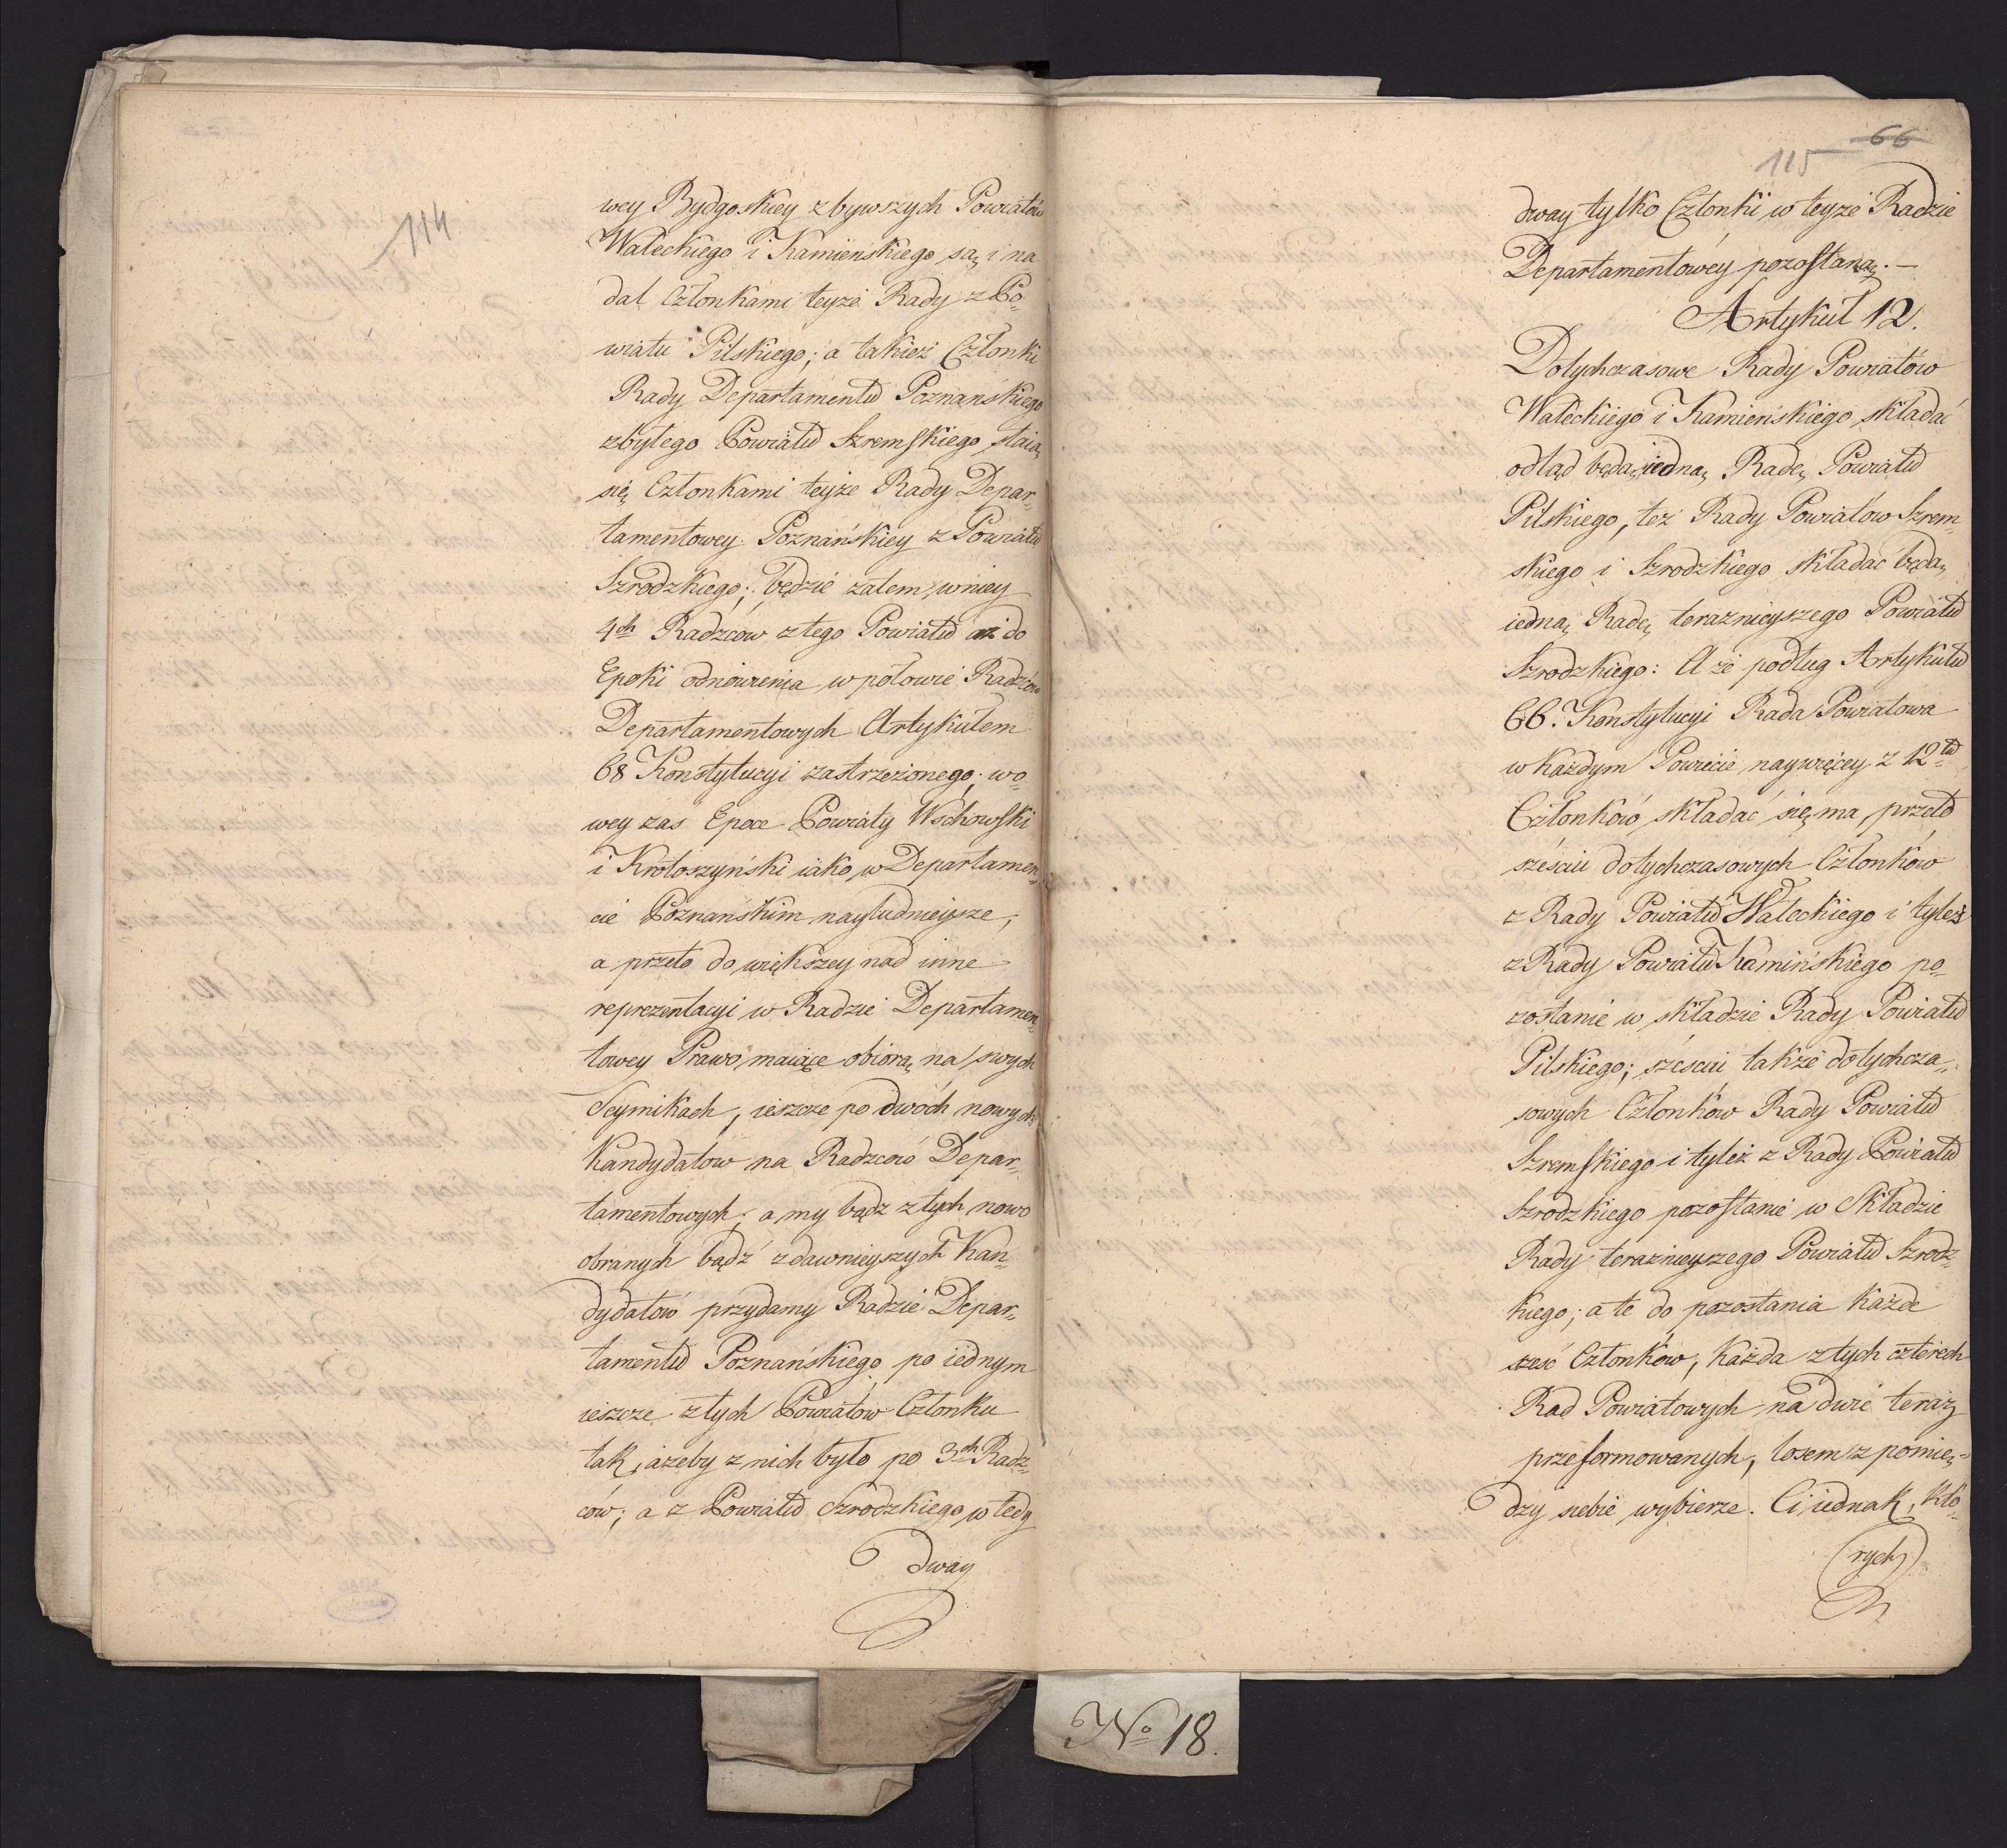 114
wey Bydgoskiey z bywszych Powiatów
Wałeckiego i Kamienskiego są, i na
dal Członkami teyże Rady z Po„
wiatu Pilskiego; a takież Członki
Rady Departamentu Poznańskiego
zbyłego Powiatu Szremskiego staią
się Członkami teyże Rady Depar„
tamentowey Poznańskiey z Powiatu
Szrodzkiego; będzie zatem w niey
4ch Radzców z tego Powiatu aż do
Epoki odnowienia w połowie Radzców
Departamentowych Artykułem
68 Konstytucyi zastrzeżonego; wo„
wey zas Epoce Powiaty Wschowski
i Krotoszyński iako w Departamen„
cie Poznańskim nayludnieysze,
a przeto do większey nad inne
reprezentacyi w Radzie Departamen„
towey Prawo maiące obiorą na swych
Seymikach, ieszcze po dwóch nowych
Kandydatow na Radzców Depar„
tamentowych; a my bądz z tych nowo
obranych bądź z dawnieyszych Kan„
dydatów przydamy Radzie Depar„
tamentu Poznańskiego po iednym
ieszcze z tych Powiatów Członku
tak, ażeby z nich było po 3ch Radz„
ców; a z Powiatu Szrodzkiego wtedy
dway
66
115
dway tylko Członki w teyże Radzie
Departamentowéy pozostaną. —
Artykuł 12.
Dotychczasowe Rady Powiatów
Wałeckiego i Kamieńskiego składać
odtąd będą iedną Radę Powiatu
Pilskiego, też Rady Powiatów Szrem„
skiego i Szrodzkiego składać będą
iedną Radę teraznieyszego Powiatu
Szrodzkiego: A że podług Artykułu
66. Konstytucyi Rada Powiatowa
w każdym Powiecie naywięcey z 12tu
Członków składać się ma, przeto
sześciu dotychczasowych Członków
z Rady Powiatu Wałeckiego i tyleż
z Rady Powiatu Kamińskiego po„
zostanie w składzie Rady Powiatu
Pilskiego; sześciu także dotychcza„
sowych Członków Rady Powiatu
Szremskiego i tyleż z Rady Powiatu
Szrodzkiego pozostanie w Składzie
Rady teraznieyszego Powiatu Szrodz„
kiego; a te do pozostania Każde
sześć Członków, Każda z tych czterech
Rad Powiatowych na dwie teraz
przeformowanych, losem z pomię„
dzy siebie wybierze. Ci iednak, któ„
rych
No 18.